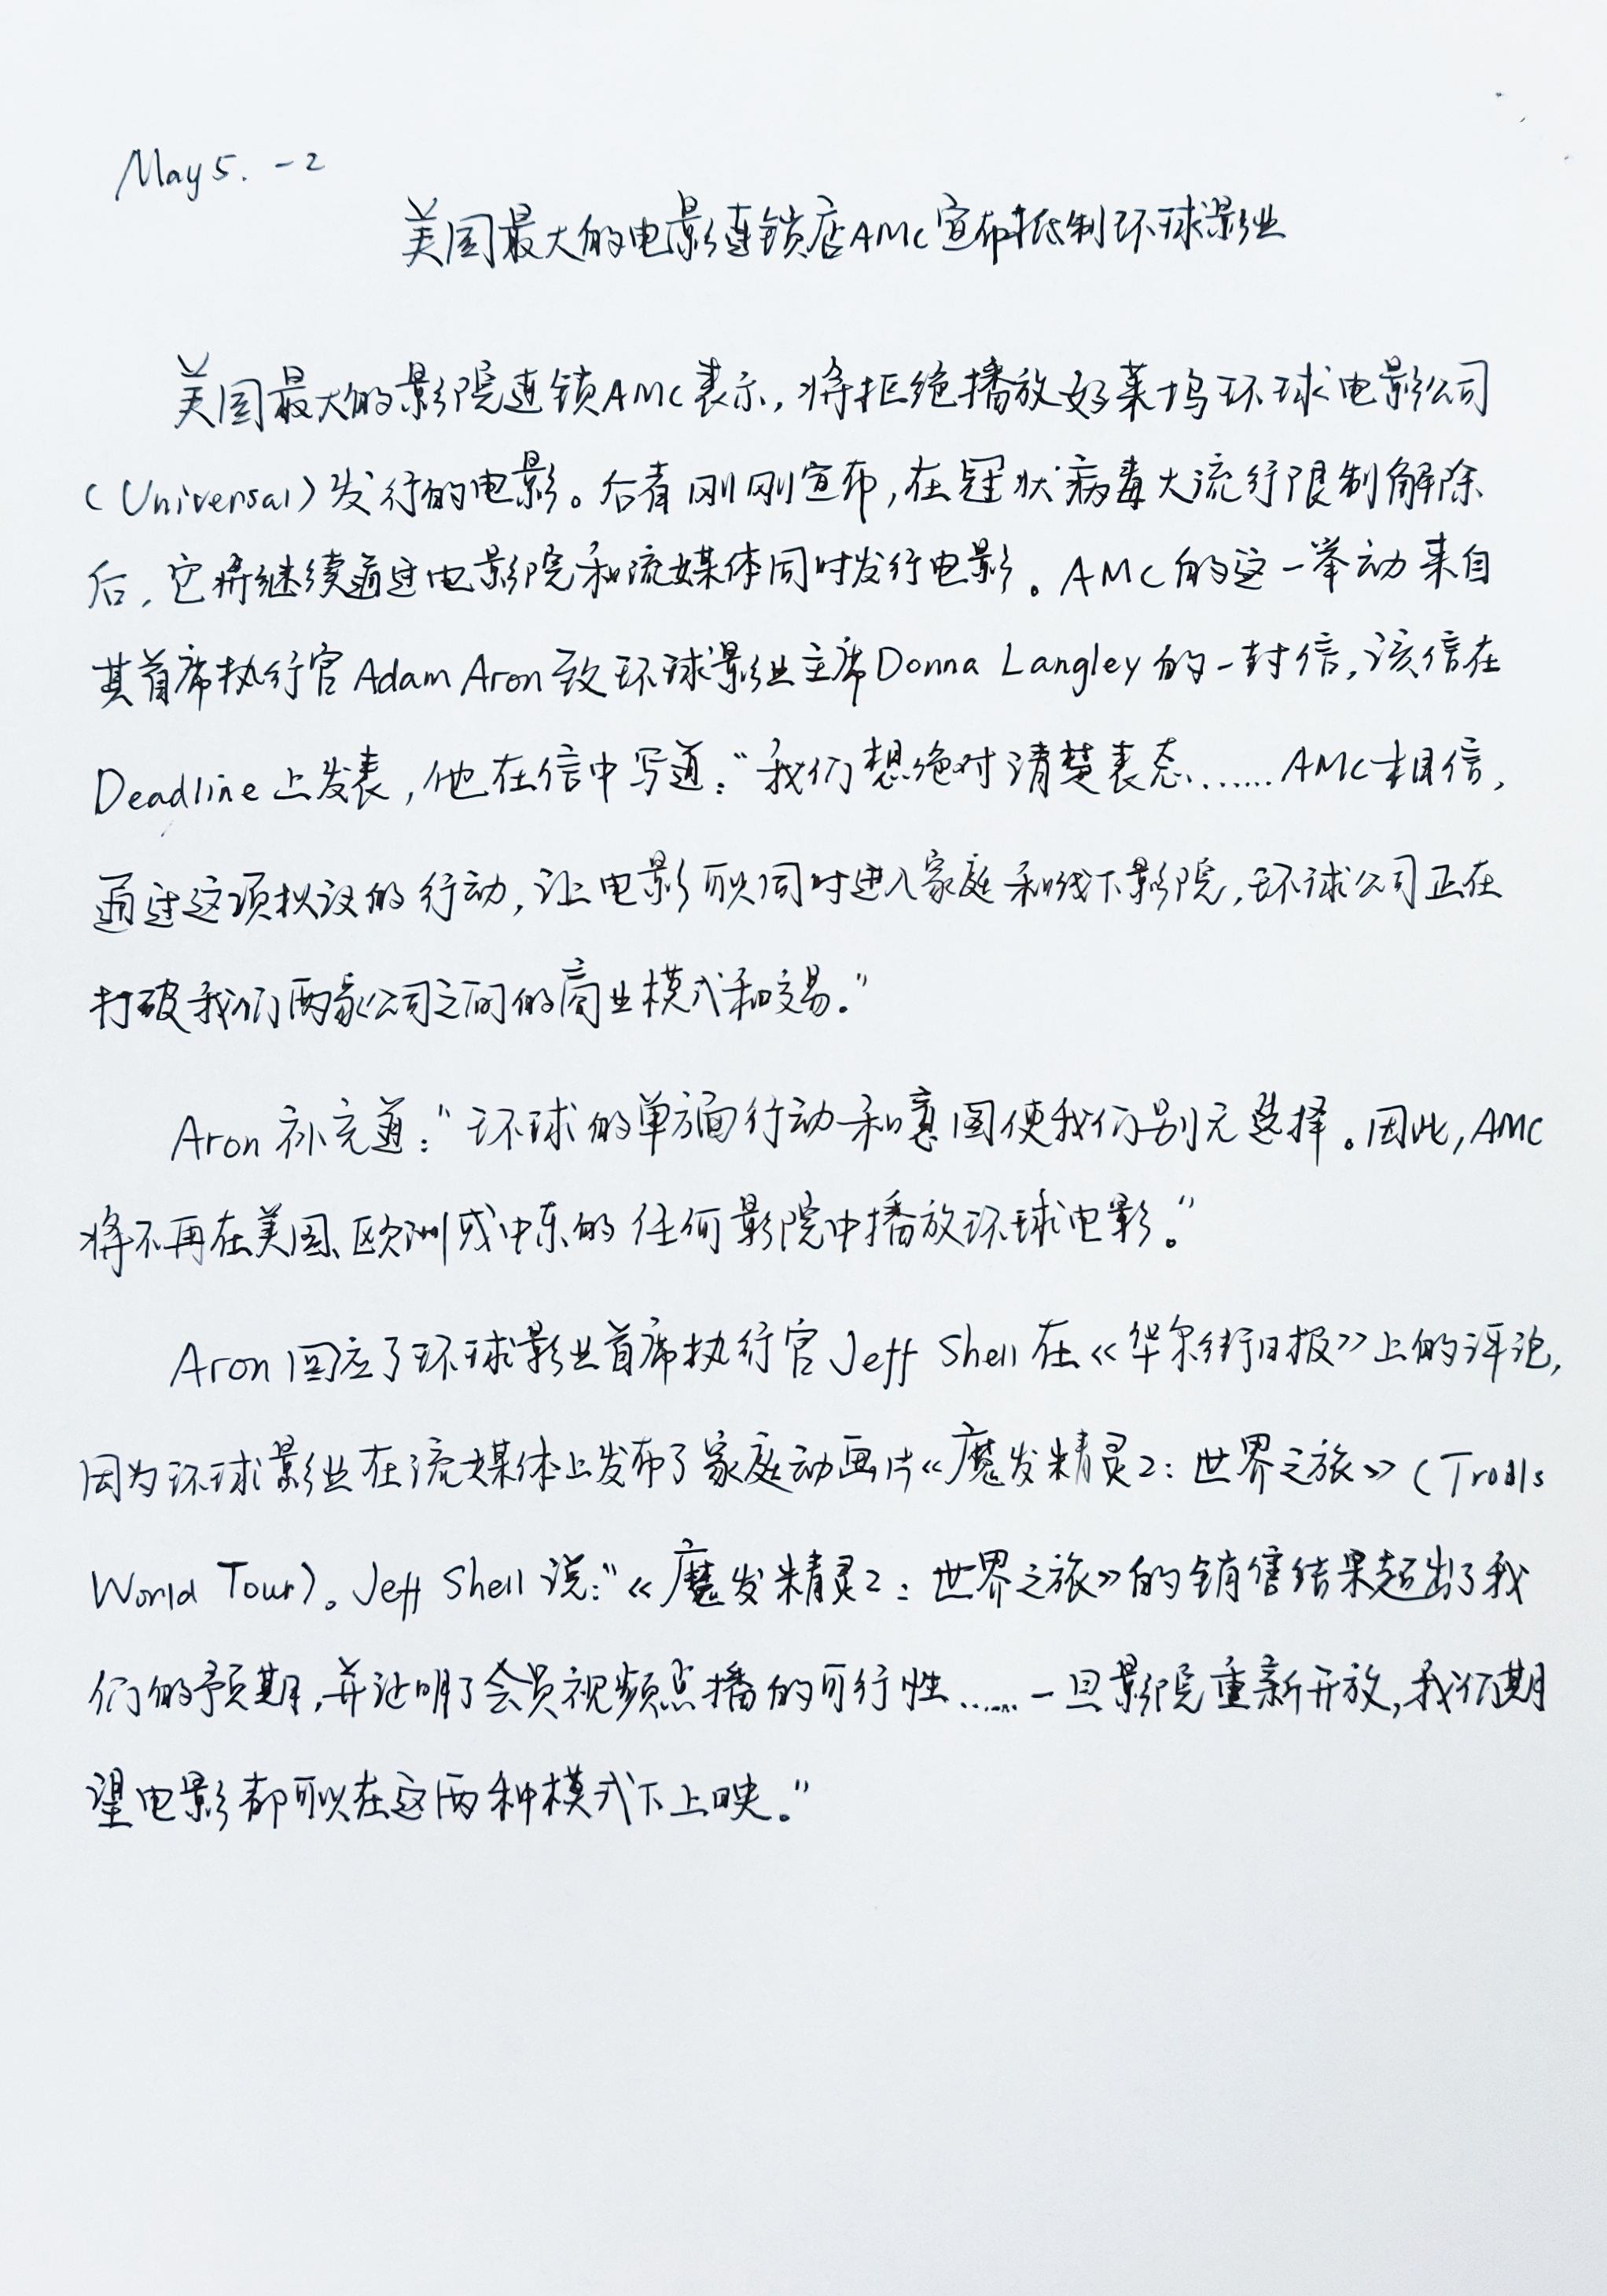 May 5. -2
美国最大的电影连锁店AMC宣布抵制环球影业
美国最大的影院连锁AMC表示,将拒绝播放好莱坞环球电影公司
(Universal)发行的电影。后者刚刚宣布,在冠状病毒大流行限制解除
后,它将继续通过电影院和流媒体同时发行电影。AMC的这一举动来自
其首席执行官Adam Aron致环球影业主席Donna Langley的一封信,该信在
Deadline上发表,他在信中写道:“我们想绝对清楚表态……AMC相信,
通过这项拟议的行动,让电影可以同时进入家庭和线下影院,环球公司正在
打破我们两家公司之间的商业模式和交易。”
Aron补充道:“环球的单方面行动和意图使我们别无选择。因此,AMC
将不再在美国、欧洲或中东的任何影院中播放环球电影。”
Aron回应了环球影业首席执行官Jeff Shell在《华尔街日报》上的评论,
因为环球影业在流媒体上发布了家庭动画片《魔发精灵2:世界之旅》(Trolls
World Tour)。Jeff Shell说:“《魔发精灵2:世界之旅》的销售结果超出了我
们的预期,并证明了会员视频点播的可行性……一旦影院重新开放,我们期
望电影都可以在这两种模式下上映。”